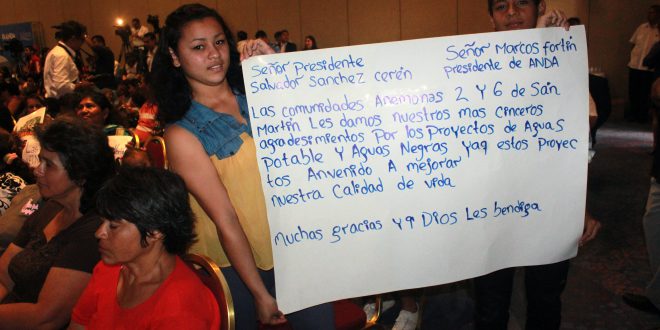 Señor Presidente
Salvador Sanchez cerén
Señor Marcos fortin
presidente de ANDA
Las comunidades Anemonas 2 Y 6 de San
Martin Les damos nuestros mas cinceros
agradesimientos Por los Proyectos de Aguas
Potable Y Aguas Negras Yaq estos Proyec
tos Anvenido A mejorar
nuestra calidad de vida
Muchas gracias Y q Dios Les bendiga